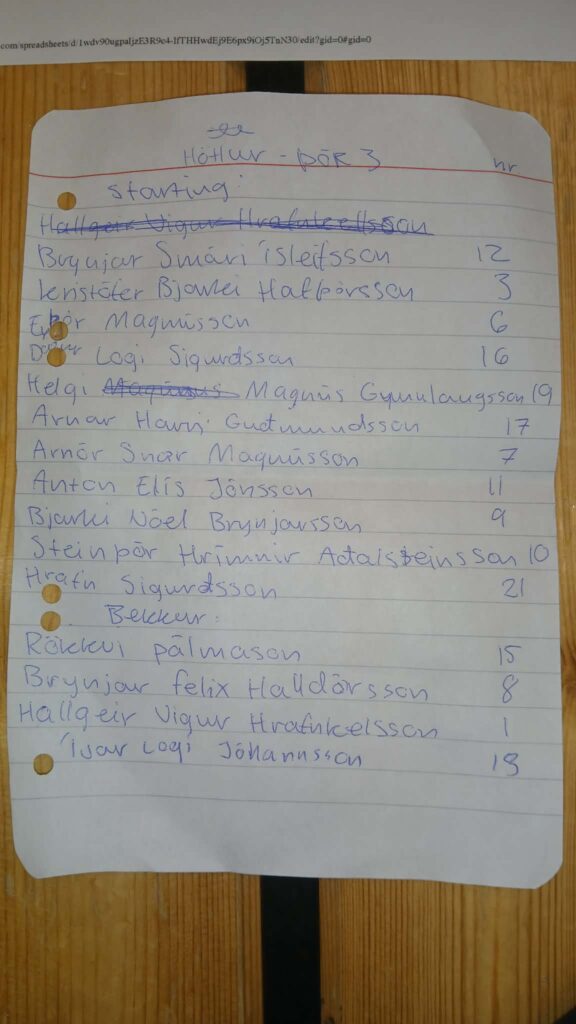 com/spreadsheets/d/1wdv90ugpaljzE3R9c4-IfTHHwdEj9E6px9iOj5TnN30/edit?gid=0#gid=0
Höttur - ÞÓR 3 nr
starting:
Hallgeir Vigur Hrafnkellsson
Brynjar Smári Ísleifsson 12
Kristófer Bjarki Hafþórsson 3
Þór Magnússon 6
Logi Sigurdsson 16
Helgi Magnús Gunnlaugsson 19
Arnar Harri Guðmundsson 17
Arnór Snær Magnússon 7
Anton Elís Jónsson 11
Bjarki Nóel Brynjarsson 9
Steinþór Hrímnir Aðalsteinsson 10
Hrafn Sigurðsson 21
Bekkur:
Rökkvi pálmason 15
Brynjar felix Halldórsson 8
Hallgeir Vigur Hrafnkelsson 1
Ísar Logi Jóhannsson 18